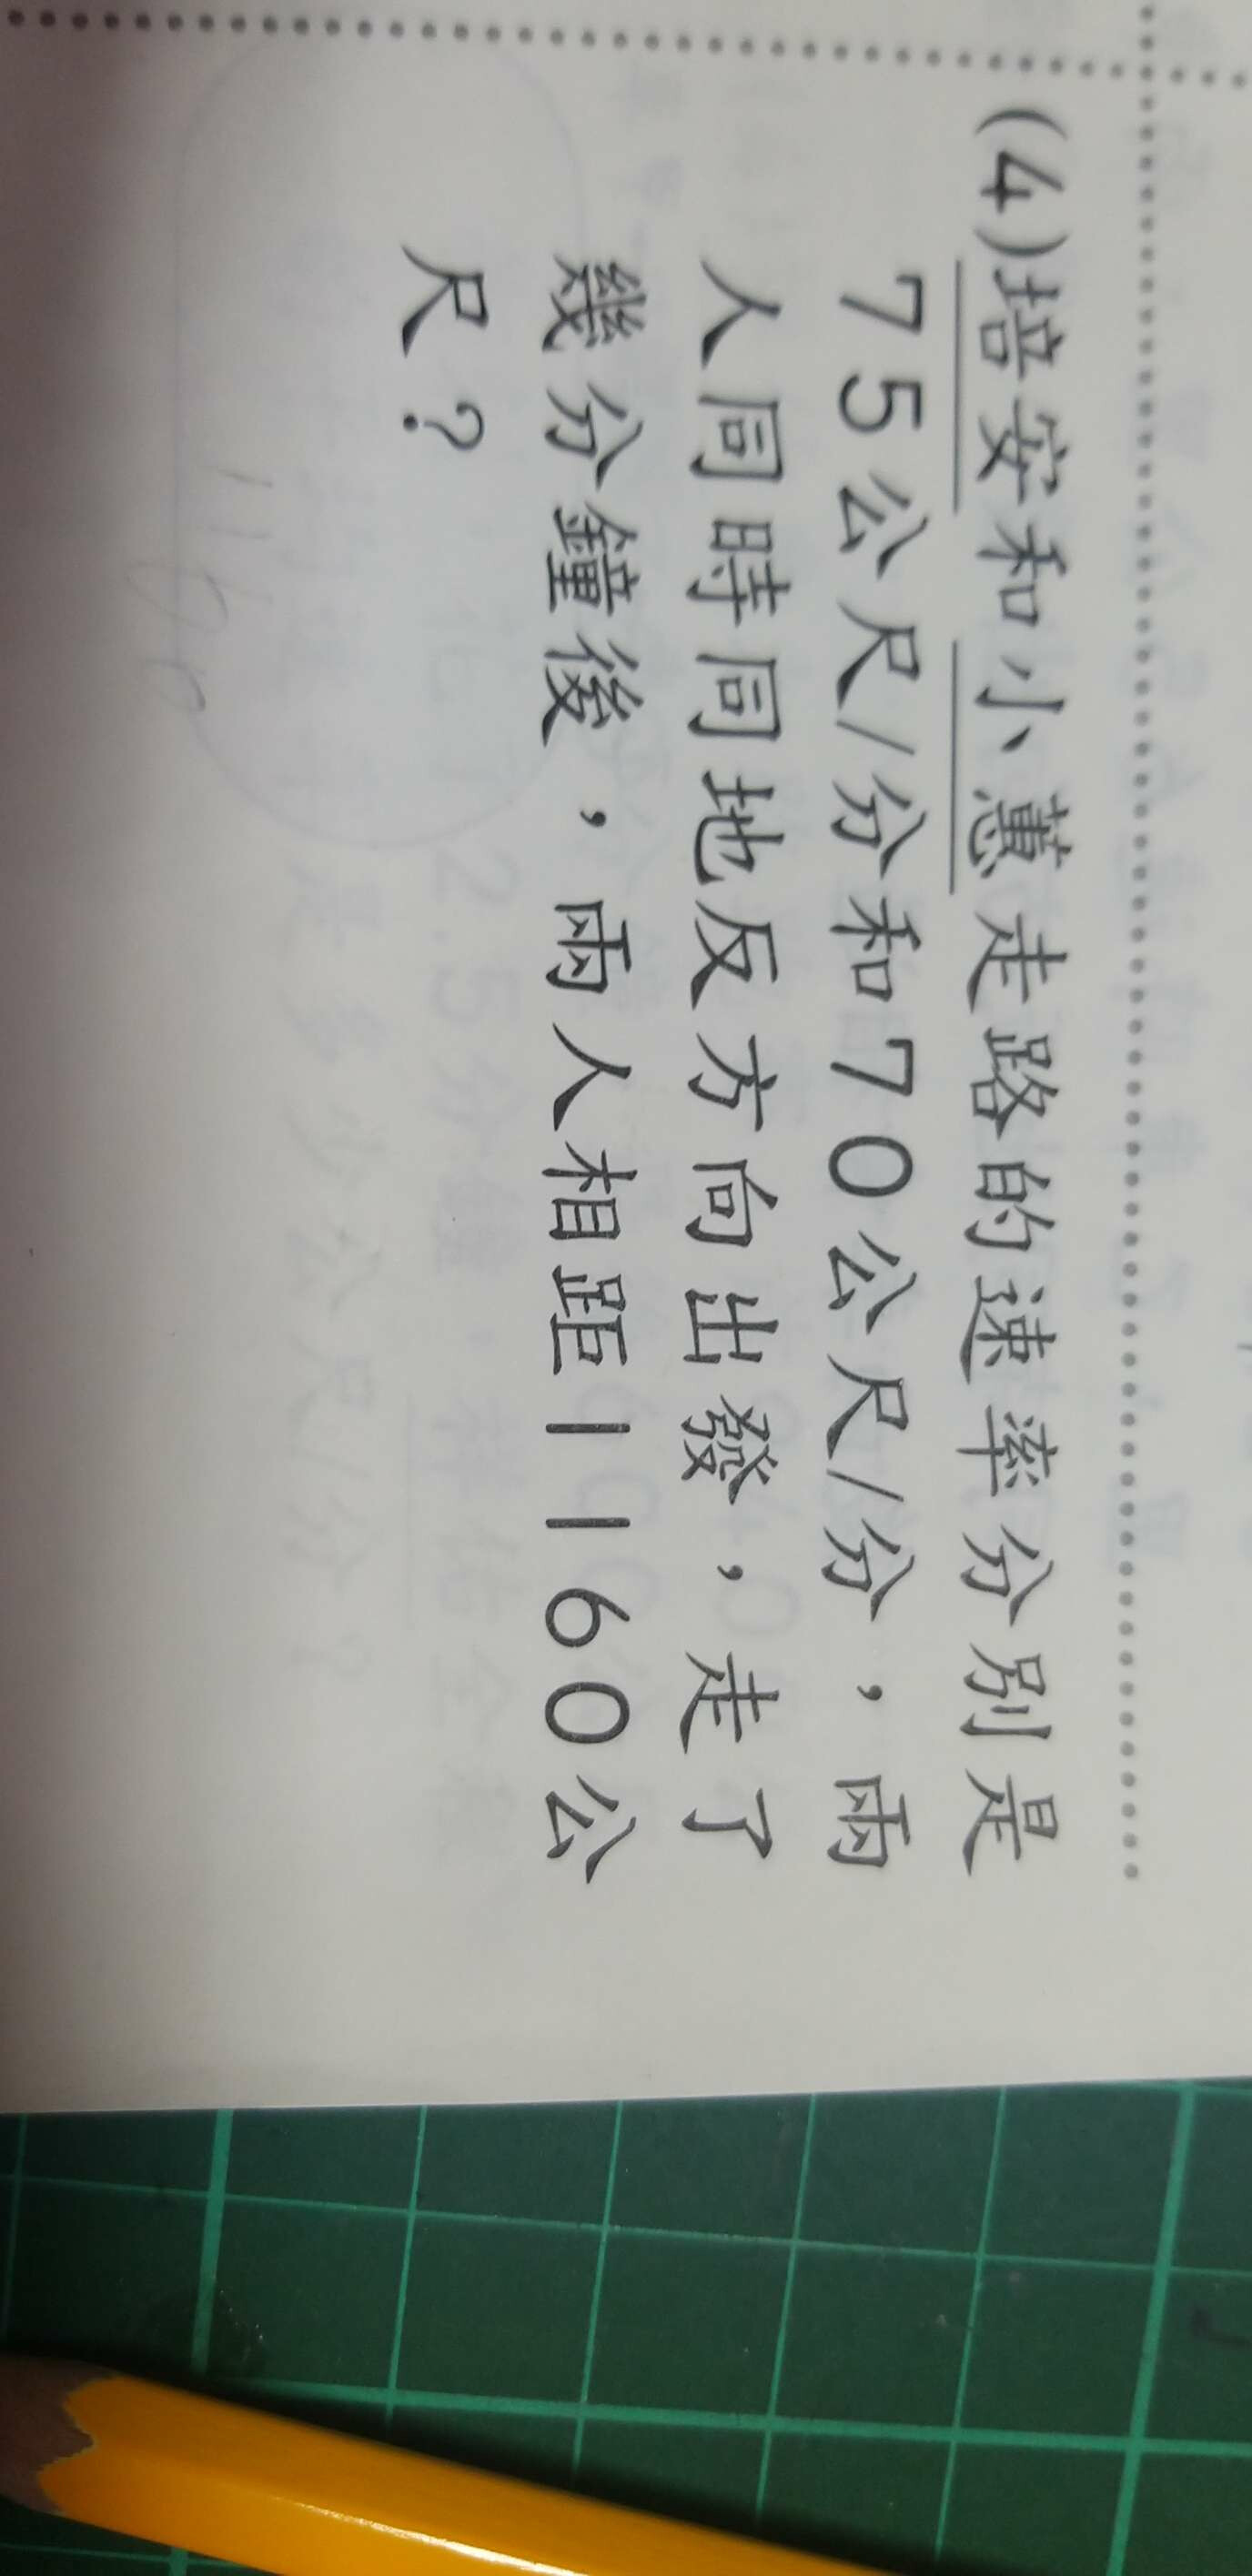 (4)培安和小蕙走路的速率分別是
75公尺/分和70公尺/分，兩
人同時同地反方向出發，走了
幾分鐘後，兩人相距1160公
尺？
1160